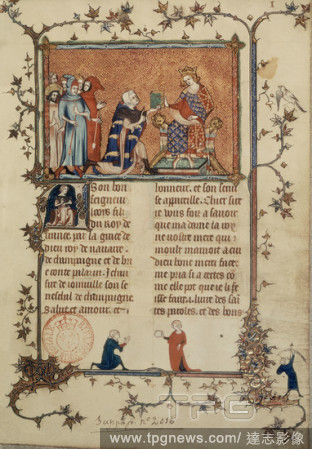 Son bon
seigneur
loois filz
du roy de
france par la grace de
dieu roy de nauarre
de champaigne et de bri
e conte palatin Jehan
sire de ioinuille son se
neschal de champaigne
salut et amour et
honneur et son seruise
appareille Chier sire
ie vous foiz a sauoir
que ma dame la royne
vostre mere qui
moult mamoit a cui
dieu bone merci face
me pria si a certes co
me elle pot que ie li fe
isse faire i liure des sai
tes paroles et des bons
TPG
www.tpgnews.com/ 達志影像